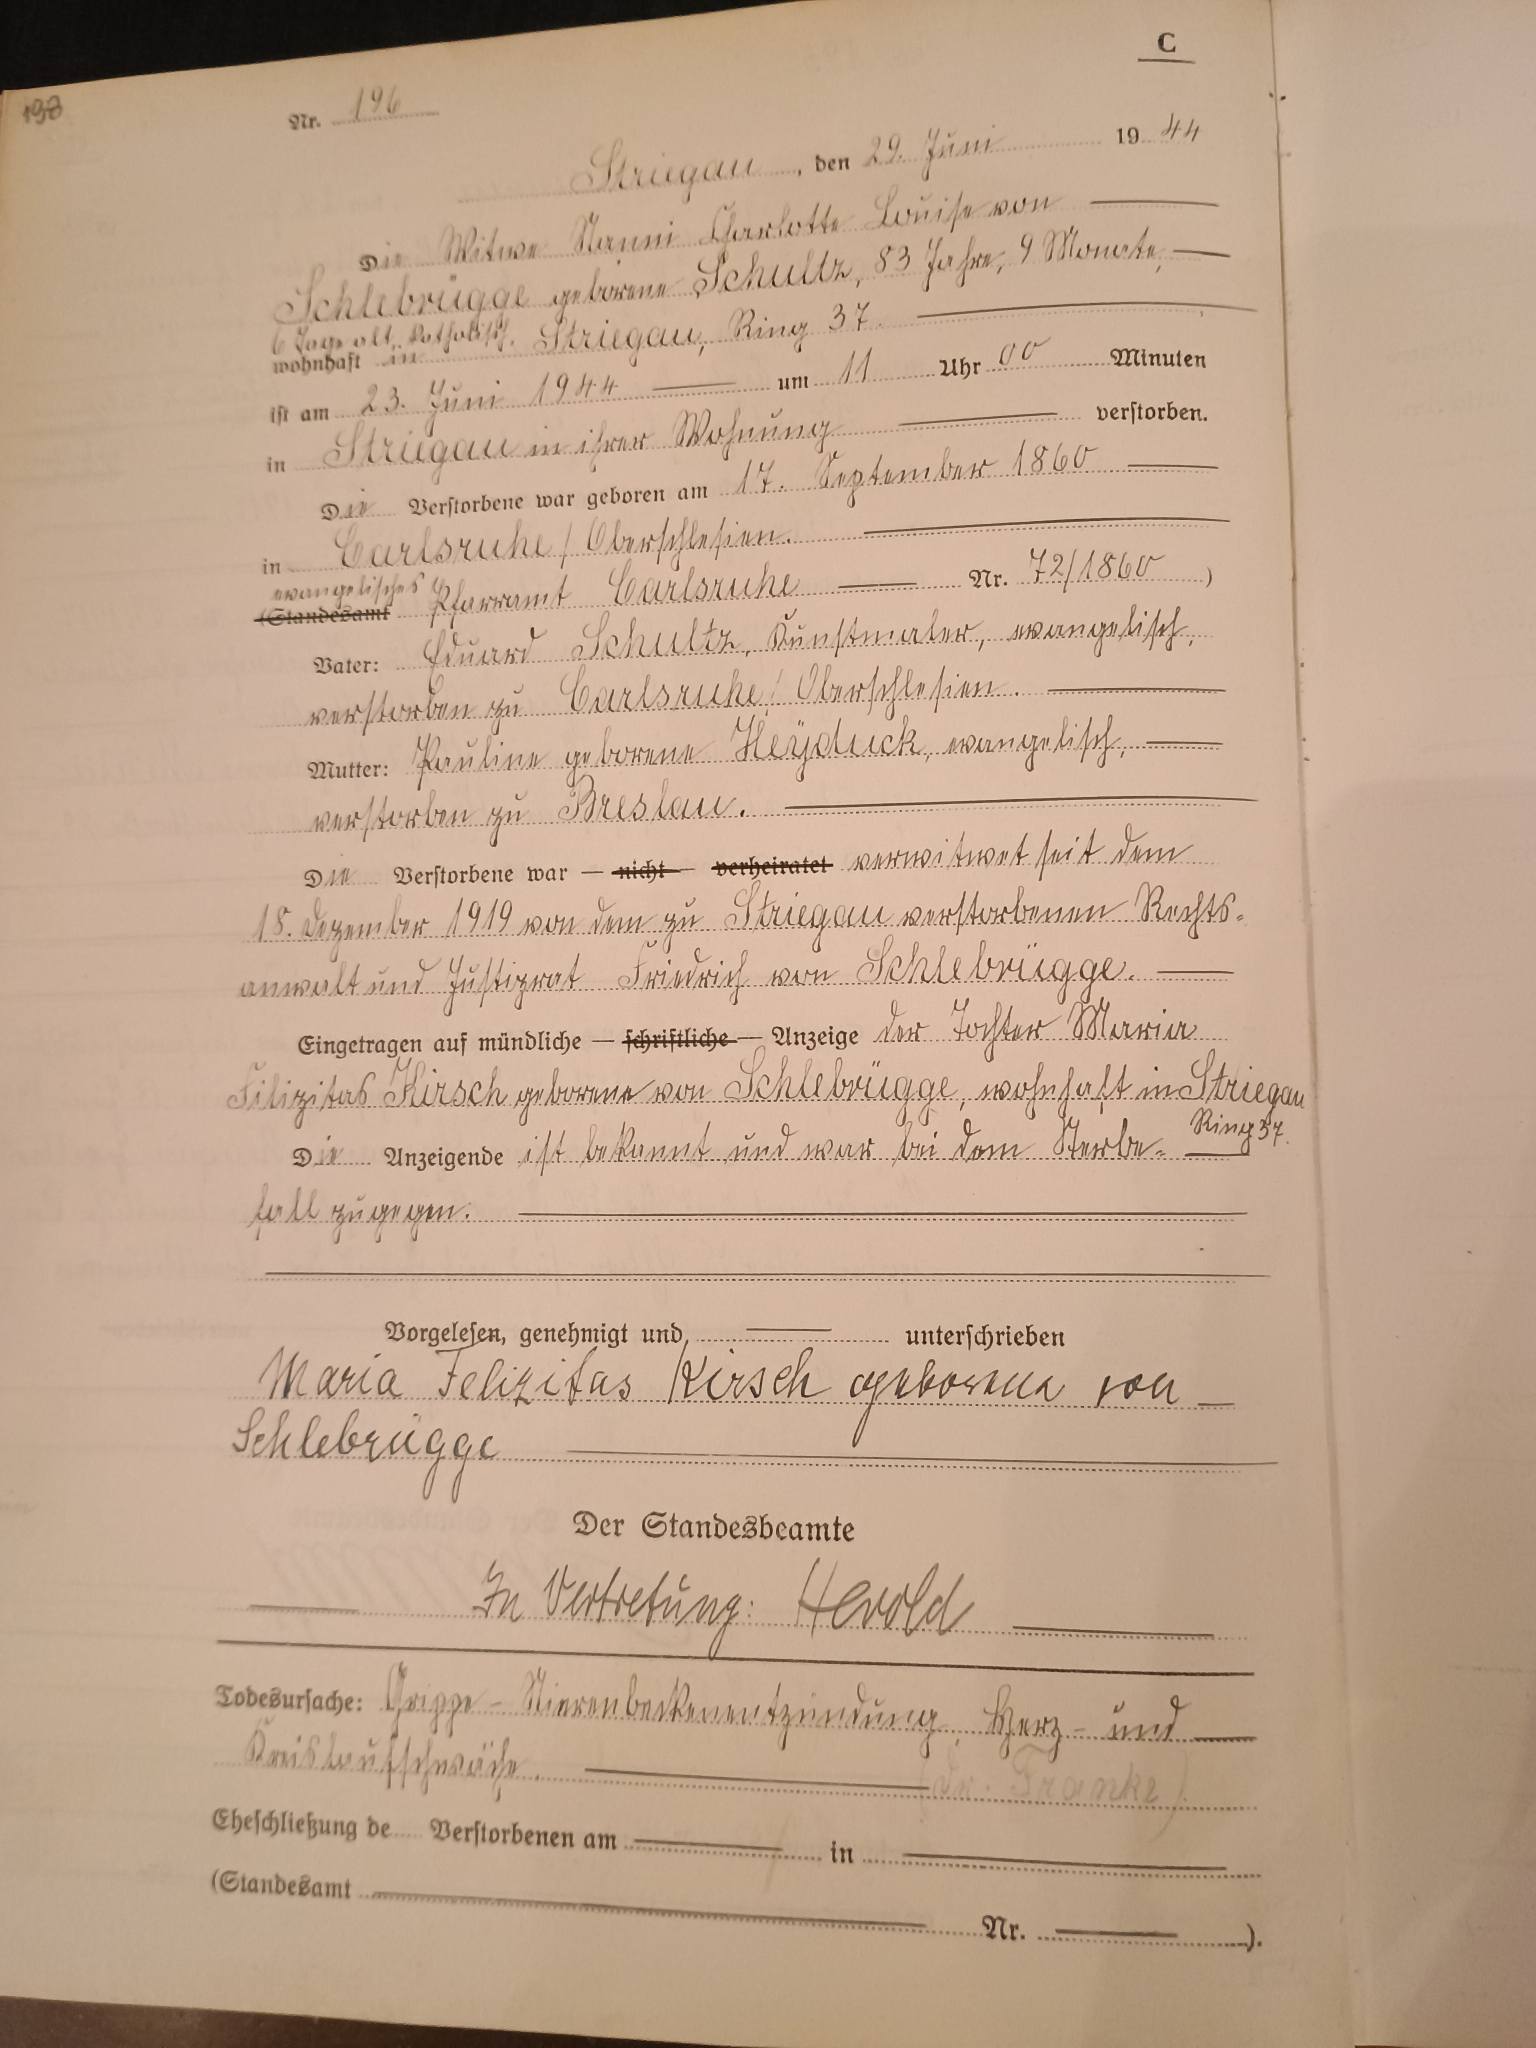 C
198
Nr. 196
Striegau, den 29. Juni 1944
Die Witwe Nanni Charlotte Louise von
Schlebrügge geborene Schultz, 83 Jahre, 9 Monate,
6 Tage alt, katholisch,
wohnhaft in Striegau, Ring 37.
ist am 23. Juni 1944 um 11 Uhr 00 Minuten
in Striegau in ihrer Wohnung verstorben.
Die Verstorbene war geboren am 17. September 1860
in Carlsruhe / Oberschlesien.
evangelisches
(Standesamt Pfarramt Carlsruhe Nr. 72/1860 )
Vater: Eduard Schultz, Kunstmaler, evangelisch,
verstorben zu Carlsruhe / Oberschlesien.
Mutter: Pauline geborene Heyduck, evangelisch,
verstorben zu Breslau.
Die Verstorbene war — nicht — verheiratet verwitwet seit dem
18. Dezember 1919 von dem zu Striegau verstorbenen Rechts-
anwalt und Justizrat Friedrich von Schlebrügge.
Eingetragen auf mündliche — schriftliche — Anzeige der Tochter Maria
Filizitas Kirsch geborene von Schlebrügge, wohnhaft in Striegau
Ring 37.
Die Anzeigende ist bekannt und war bei dem Sterbe-
fall zugegen.
Vorgelesen, genehmigt und unterschrieben
Maria Felizitas Kirsch geborene von
Schlebrügge
Der Standesbeamte
In Vertretung: Herold
Todesursache: Grippe - Nierenbeckenentzündung, Herz- und
Kreislaufschwäche. (Dr. Franke)
Eheschließung de Verstorbenen am in
(Standesamt Nr. ).